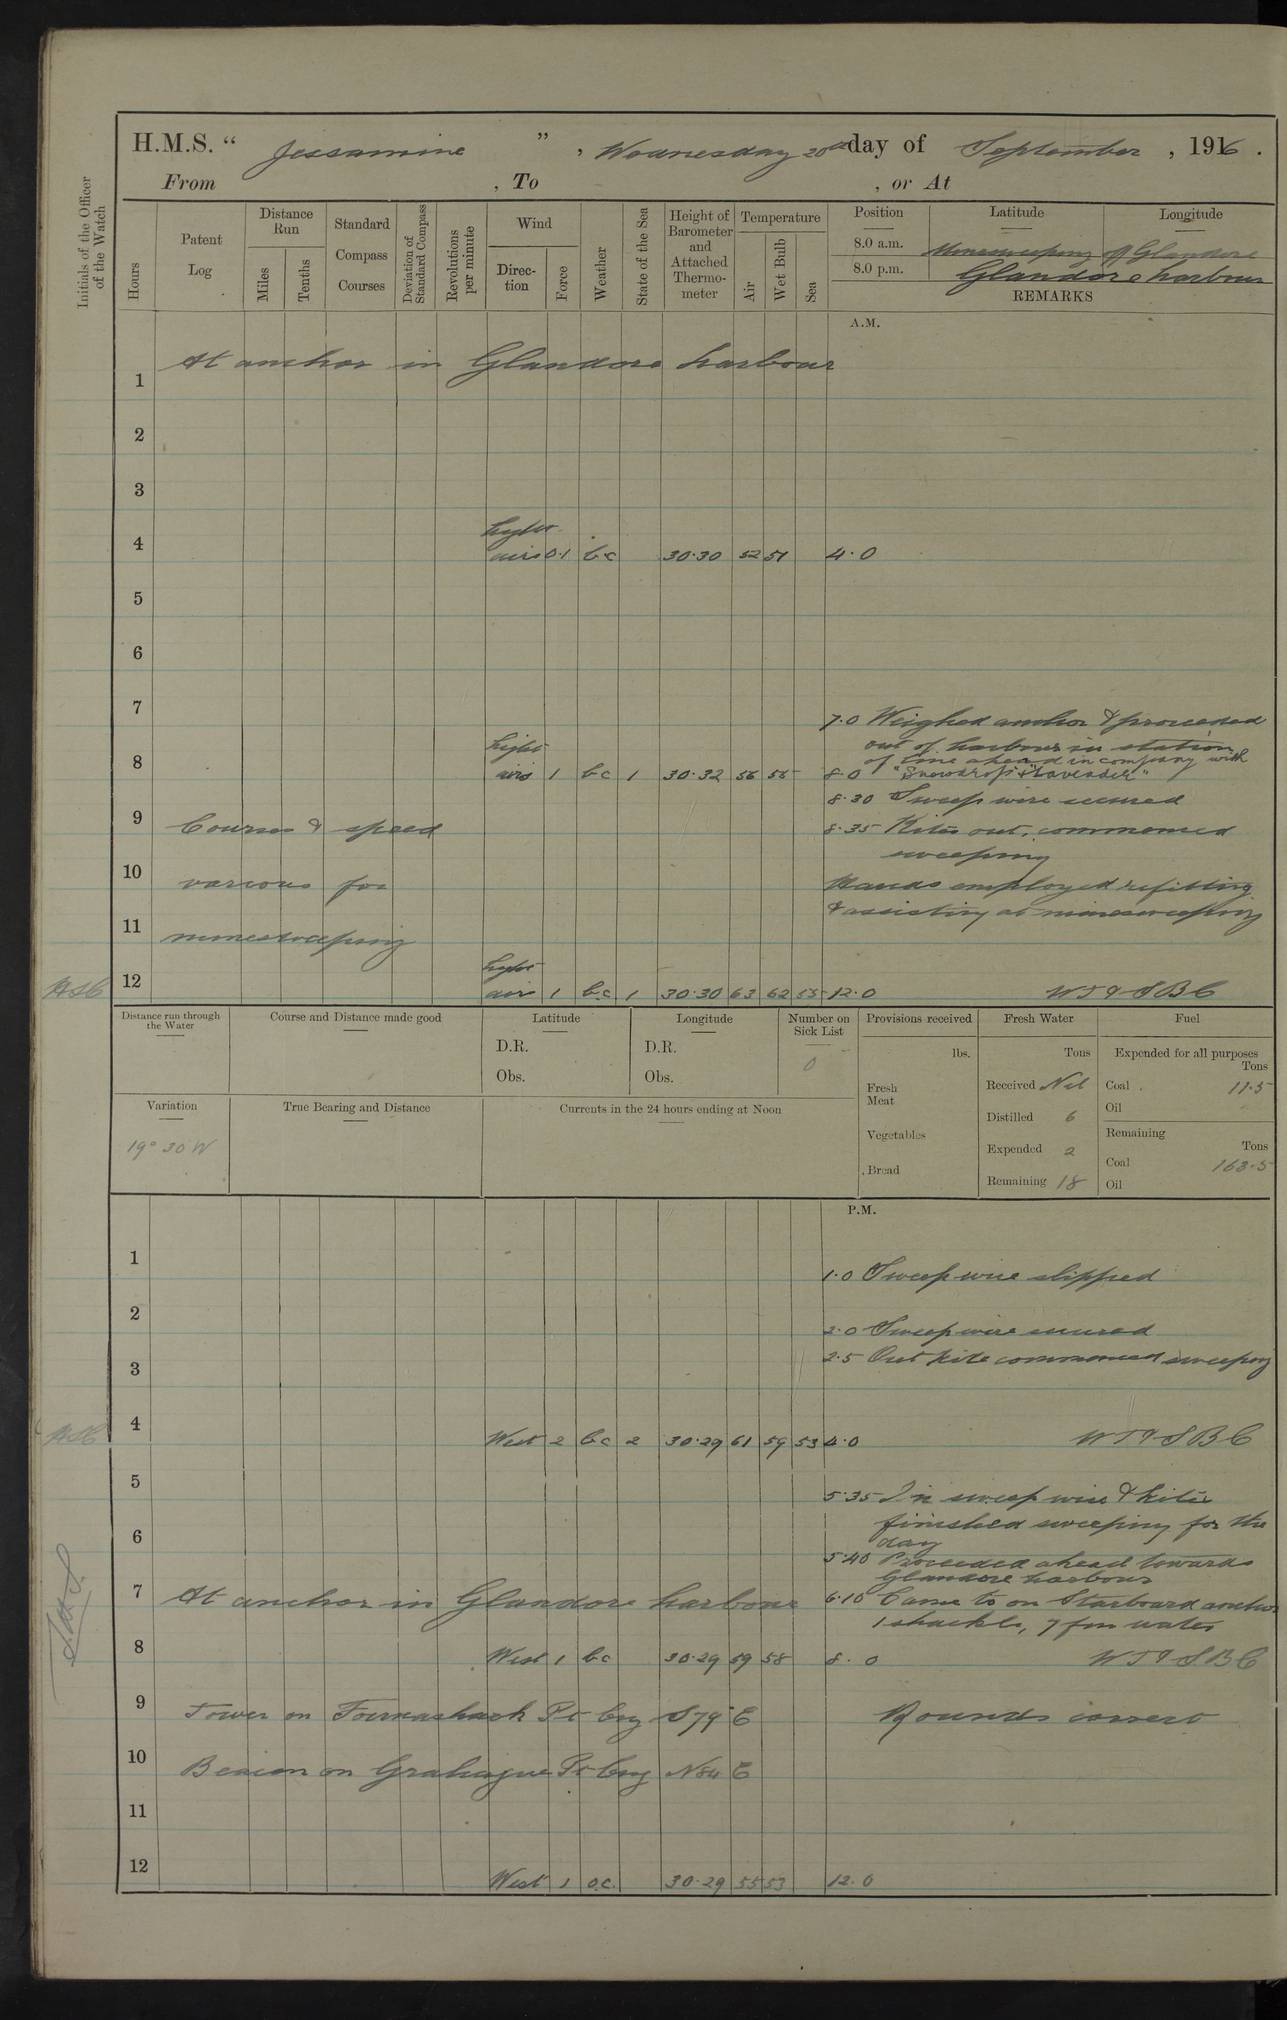 H.M.S. “ Jessamine ”, Wednesday 20th day of September, 1916.
From , To , or At
Initials of the Officer of the Watch
Hours
Patent Log
Distance Run
Miles
Tenths
Standard Compass Courses
Deviation of Standard Compass
Revolutions per minute
Wind
Direc-tion
Force
Weather
State of the Sea
Height of Barometer and Attached Thermo-meter
Temperature
Air
Wet Bulb
Sea
Position Latitude Longitude
8.0 a.m. Minesweeping off Glandore
8.0 p.m. Glandore harbour
REMARKS
A.M.
At anchor in Glandore harbour
1
2
3
Light
4 airs 0.1 bc 30.30 52 51 4.0
5
6
7
7.0 Weighed anchor & proceeded
out of harbour in station
of line ahead in company with
Light
8 airs 1 bc 1 30.32 56 55 8.0 "Snowdrop" & "Lavender"
8.30 Sweep wire secured
9 Courses & speed 8.35 Kites out, commenced
sweeping
10 various for Hands employed refitting
& assisting at minesweeping
11 minesweeping
Light
12 airs 1 bc 1 30.30 63 62 55 12.0 WT & SBC
Distance run through the Water
Course and Distance made good
Latitude
D.R.
Obs.
Longitude
D.R.
Obs.
Number on Sick List
0
Provisions received
lbs.
Fresh Meat
Vegetables
Bread
Fresh Water
Tons
Received Nil
Distilled 6
Expended 2
Remaining 18
Fuel
Expended for all purposes
Tons
Coal 11.5
Oil
Remaining
Tons
Coal 163.5
Oil
Variation
19° 30 W
True Bearing and Distance
Currents in the 24 hours ending at Noon
P.M.
1
1.0 Sweep wire slipped
2
2.0 Sweep wire secured
2.5 Out kite commenced sweeping
3
4 West 2 bc 2 30.29 61 59 53 4.0 WT & SBC
5
5.35 In sweep wire & kites
finished sweeping for the
day
6
5.40 Proceeded ahead towards
Glandore harbour
7 At anchor in Glandore harbour 6.10 Came to on Starboard anchor
1 shackle, 7 fm water
8 West 1 bc 30.29 59 58 8.0 WT & SBC
9 Tower on Pt brg S 79° E Rounds correct
10 Beacon on Pt brg N 84 E
11
12 West 1 o.c. 30.29 55 53 12.0